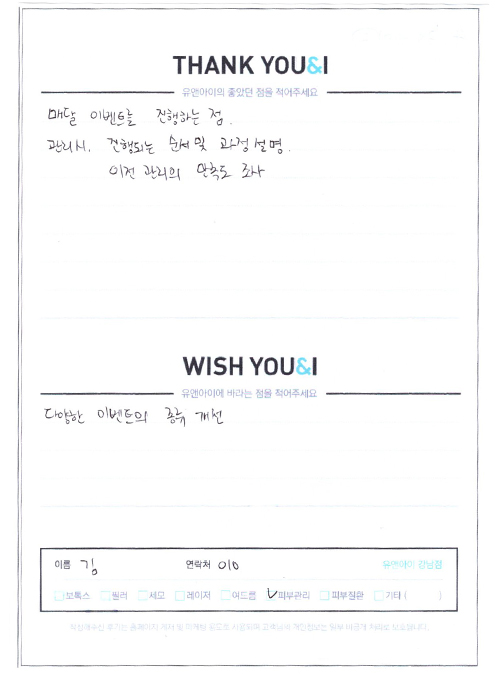 THANK YOU&I
유앤아이의 좋았던 점을 적어주세요
매달 이벤트를 진행하는 점.
관리시. 진행되는 순서 및 과정 설명.
이전 관리의 만족도 조사
WISH YOU&I
유앤아이에 바라는 점을 적어주세요
다양한 이벤트의 종류 개선
이름 김 연락처 010 유앤아이 강남점
보톡스 필러 제모 레이저 여드름 피부관리 피부질환 기타 ( )